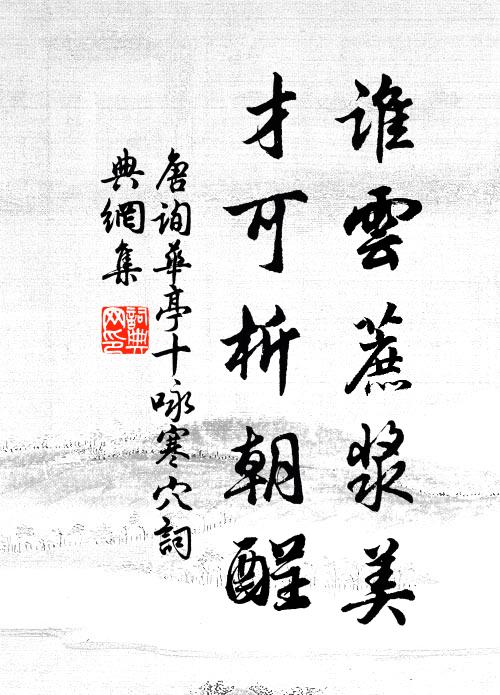 誰雲蔗漿美
才可析朝酲
唐詢華亭十咏寒穴詞
典網集
詞典网印